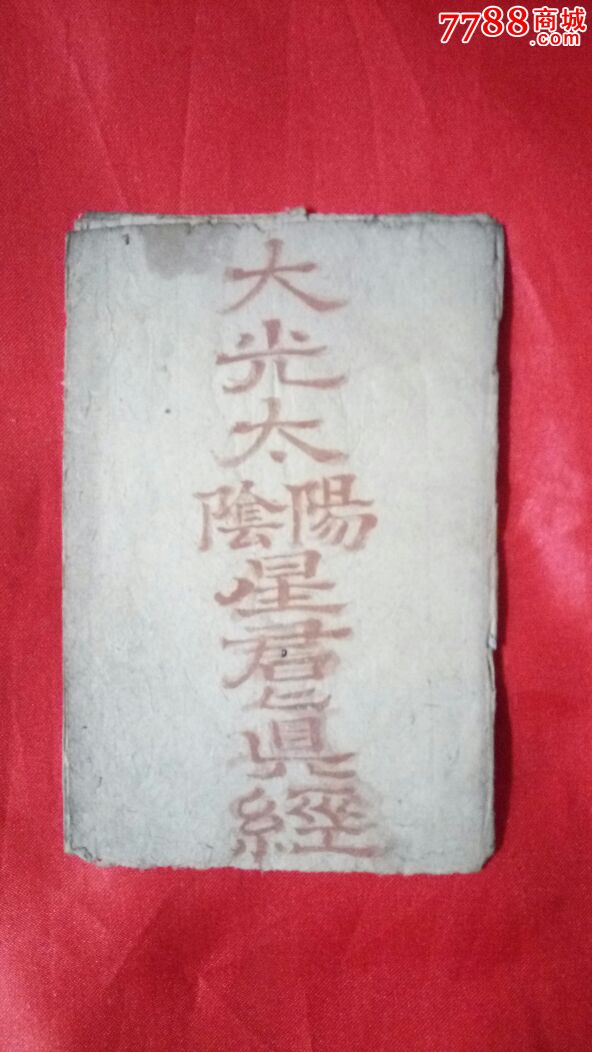 7788商城
.com
大光太
陽陰
星君真經